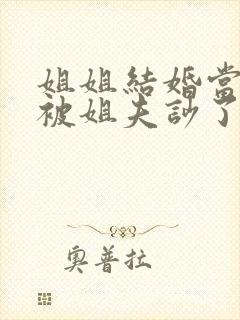 姐姐結婚當
被姐夫訬了
奧普拉